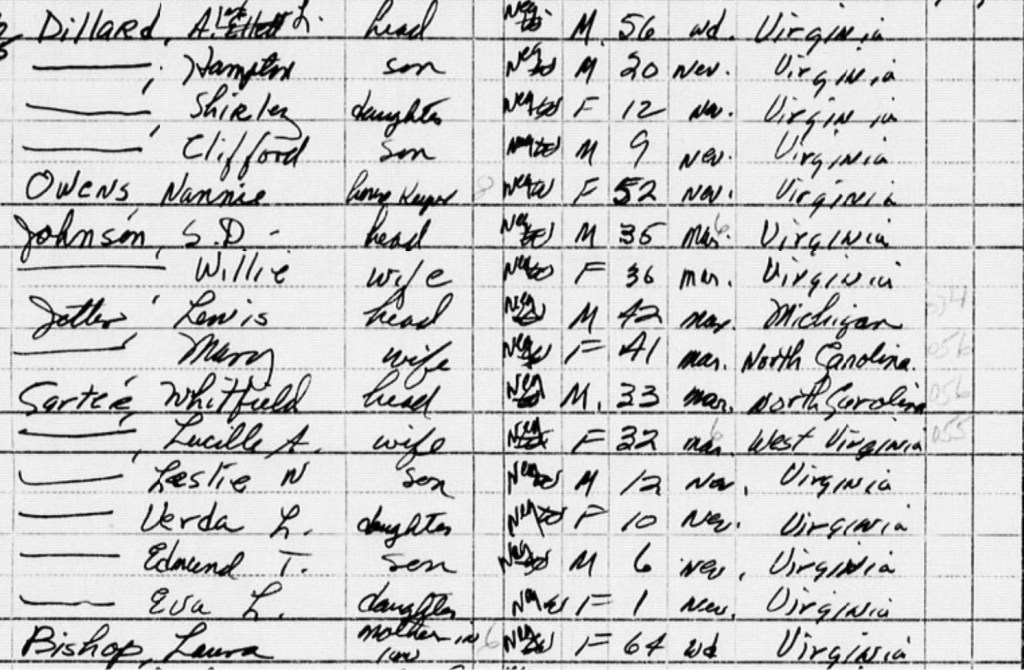 Dillard, A. L. head Neg M. 56 wd. Virginia
——, Hampton son Neg M 20 nev. Virginia
——, Shirley daughter Neg F 12 nev. Virginia
——, Clifford son Neg M 9 nev. Virginia
Owens, Nannie house keeper Neg F 52 nev. Virginia
Johnson, S.D. - head Neg M 35 mar. Virginia
—— Willie wife Neg F 36 mar. Virginia
Lewis head Neg M 42 mar. Michigan
——, Mary wife Neg F 41 mar. North Carolina. 056
Whitfield head Neg M. 33 mar. North Carolina 056
——, Lucille A. wife Neg F 32 mar. West Virginia 055
—— Leslie N son Neg M 12 nev. Virginia
—— Verda L. daughter Neg F 10 nev. Virginia
—— Edmund T. son Neg M 6 nev. Virginia
—— Eva L. daughter Neg F 1 nev. Virginia
Bishop, Laura mother in law Neg F 64 wd Virginia